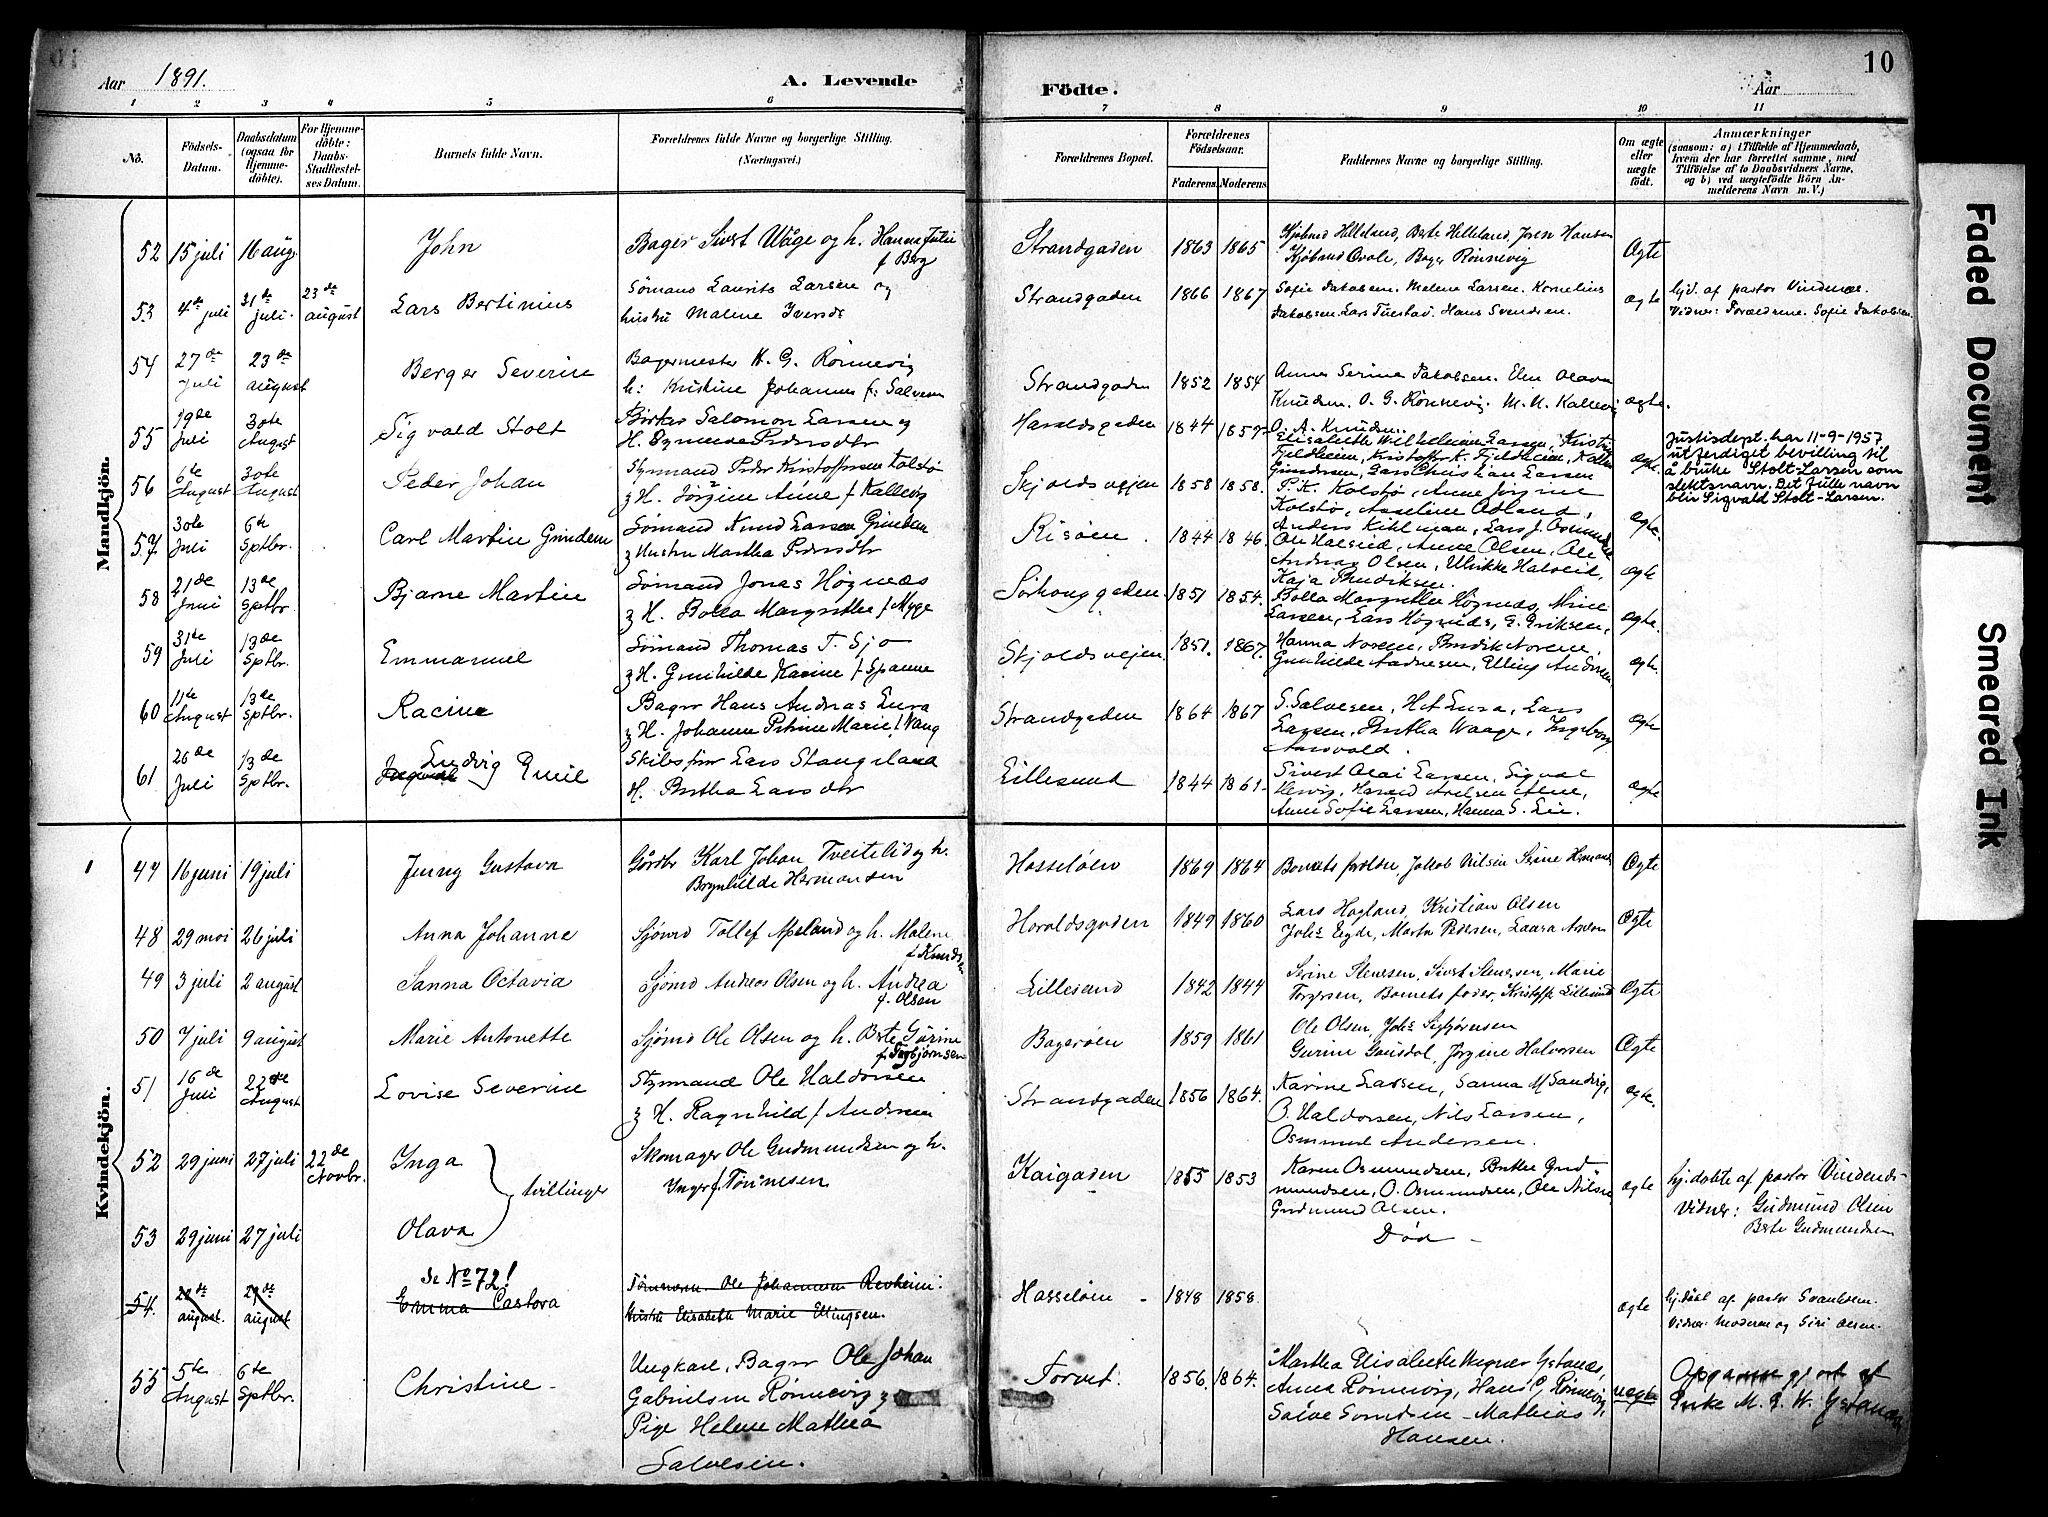 Aar 1891.
A. Levende
Födte.
Aar
10
1 2 3 4 5 6 7 8 9 10 11
No.
Födsels-Datum.
Daabsdatum (ogsaa for Hjemme-döbte).
For Hjemme-döbte: Daabs-Stadfæstel-ses Datum.
Barnets fulde Navn.
Forældrenes fulde Navne og borgerlige Stilling. (Næringsvei.)
Forældrenes Bopæl.
Forældrenes Födselsaar.
Faderens Moderens
Faddernes Navne og borgerlige Stilling.
Om ægte eller uægte födt.
Anmærkninger
(saasom: a) i Tilfælde af Hjemmedaab, hvem der har forrettet samme, med Tilföielse af to Daabsvidners Navne, og b) ved uægtefödte Börn An-melderens Navn m. V.)
Mandkjön.
52 15 juli 16 aug. John
Bager Sivert Våge og h. Hanna Julie
f Berg
Strandgaden 1863 1865
Kjøbmd Helleland, Berte Helleland, Hansen
Kjøbmd Qvale, Bager Rønnevig
Ægte
53 4de juli 31de juli. 23de august Lars Bertinius
Sömand Laurits Larsen og
hustru Malene Iversdr
Strandgaden 1866 1867
Sofie Jakobsen. Malene Larsen. Kornelius
Jakobsen. Lars Tuestad. Hans Svendsen.
ægte
hjd. af pastor Vindenæs.
Vidner: Forældrene. Sofie Jakobsen.
54 27de juli 23de august Berger Severin
Bagermester K. G. Rønnevig
h: Kristine Johanna f: Salvesen
Strandgaden 1852 1854
Anne Serine Jakobsen. Elen Olava
Knudsen. O. G. Rønnevig. M. N. Kallevig
ægte.
55 19de Juli 30te August Sigvald Stolt
Salomon Larsen og
H. Pedersdtr
Haraldsgaden 1844 1857
O. A. Knudsen
Elisabeth Wilhelmine Larsen,
Fjeldheim, Kristoffer K. Fjeldheim,
Gundersen, Lars Larsen
ægte.
Justisdept. har 11-9-1957
utferdiget bevilling til
å bruke Stolt-Larsen som
slektsnavn. Det fulle navn
blir Sigvald Stolt-Larsen.
56 6te August 30te August Peder Johan
Styrmand Peder Kristoffersen Kolstø
& H. Jørgine Anne f Kallevig
Skjoldsvejen 1858 1858.
P. K. Kolstø, Anne Jørgine
Kolstø, Asseline Ådland,
ægte.
57 30te Juli 6te Sptbr. Carl Martin Gunder
Sömand Knud Larsen
& Hustru Martha Pedersdtr
Risöen. 1844 1846.
Anders Kihlman, Lars J.
Ole Halseid, Anne Olsen, Ole
Andreas Olsen, Ulrikke Halseid,
Kaja Bendiksen.
ægte
58 21de Juni 13de Sptbr. Bjarne Martin
Sömand Jonas Högnæs
& H. Bolla Margrethe f Mygge
Sørhauggaden 1851 1854.
Bolla Margrethe Högnæs, Mine
Larsen, Lars Högnæs, G. Eriksen,
ægte.
59 31te Juli 13de Sptbr. Emmanuel
Sömand Thomas T. Sjo
& H. Gunhilde Karine f Spanne
Skjoldsvejen 1851. 1867.
Hanna Noreen, Bendik Noreen,
Gunhilde Andresen, Elling Andersen
ægte.
60 11te August 13de Sptbr. Racine
Bager Hans Andreas Lura
& H. Johanne Petrine Marie f Vang
Strandgaden 1864 1867
S. Salvesen, H. A. Lura, Lars
Larsen, Bertha Waage, Ingeborg
ægte
61 26de Juli 13de Sptbr. Ludvig Ingvald Emil
Skibsfører Lars Stangeland
H. Bertha Larsdtr
Lillesund 1844 1861
Sivert Olai Larsen, Sigval
Anne Sofie Larsen, Hanna S. Lie.
ægte
Kvindekjön.
1 47 16 juni 19 juli Jenny Gustava
Gårdbr Karl Johan Tveitelid og h.
Brynhilde Hermansen
Hasseløen 1869 1864
Barnets forældre, Jakob Nilsen Serine Hermans
Ægte
48 29 mai 26 juli Anna Johanne
Sjömd Tollef Apeland og h. Malene
f Knudsen
Haraldsgaden 1849 1860
Lars Hagland, Kristian Olsen
Johs Eegde, Marta Pedersen, Laura
Ægte
49 3 juli 2 august Sanna Octavia
Sjömd Andreas Olsen og h. Andrea
f. Olsen
Lillesund 1842 1844
Serine Stensen, Sivert Stensen, Marie
Torgersen, Barnets fader, Kristoffer Lillesund
Ægte
50 7 juli 9 august Marie Antonette
Sjömd Ole Olsen og h. Berte Gurine
f. Sigbjørnsen
Bagerøen 1859 1861
Ole Olsen, Johs Sigbjørnsen
Gurine Gausdal, Jørgine Halvorsen
Ægte
51 16de Juli 22de August Lovise Severine
Styrmand Ole Haldorsen
& H. Ragnhild f Andersen
Strandgaden 1856 1864.
Karine Larsen, Sanna M Sandvig,
O. Haldorsen, Nils Larsen,
Osmund Andersen.
ægte.
52 29 juni 27 juli 22de Novbr. Inga
tvillinger
Skomager Ole Gudmundsen og h.
Inger f. Tønnesen
Kaigaden 1855 1853
Karen Osmundsen, Berthe Gud-
mundsen, O. Osmundsen, Ole Nilsen
Gudmund Olsen.
ægte
hj. døbte af pastor Vindenæs
Vidner: Gudmund Olsen
Berte Gudmundsen
53 29 juni 27 juli Olava
Död -
54. 29de august. 29de august
Se No 72!
Emma Castora
Tømmerm. Ole Johannesen Revheim.
Hustru Elisabeth Marie Ellingsen.
Hasseløen - 1848 1858.
ægte
hj. døbt af pastor Svendsen.
Vidner: Moderen og Siri Olsen.
55 5te August 6te Sptbr. Christine -
Ungkarl, Bager Ole Johan
Gabrielsen Rønnevig &
Pige Helene Mathea
Salvesen.
Torvet. 1856. 1864.
Martha Elisabeth Wegner Ystanæs,
Anna Rønnevig, Hans P. Rønnevig,
Salve Svendsen - Mathias
Hansen.
uægte
Opgaven gjort af
Enke M. E. W. Ystanæs
Faded Document
Smeared Ink